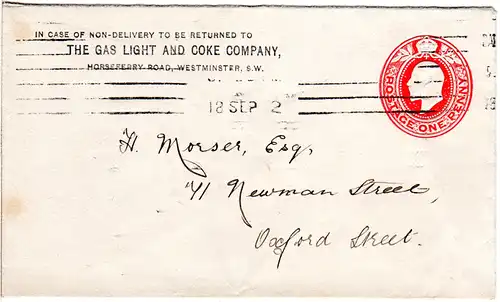 IN CASE OF NON-DELIVERY TO BE RETURNED TO
THE GAS LIGHT AND COKE COMPANY,
HORSEFERRY ROAD, WESTMINSTER, S.W.
18 SEP 2
POSTAGE ONE PENNY
H. Morser, Esq.
71 Newman Street,
Oxford Street.